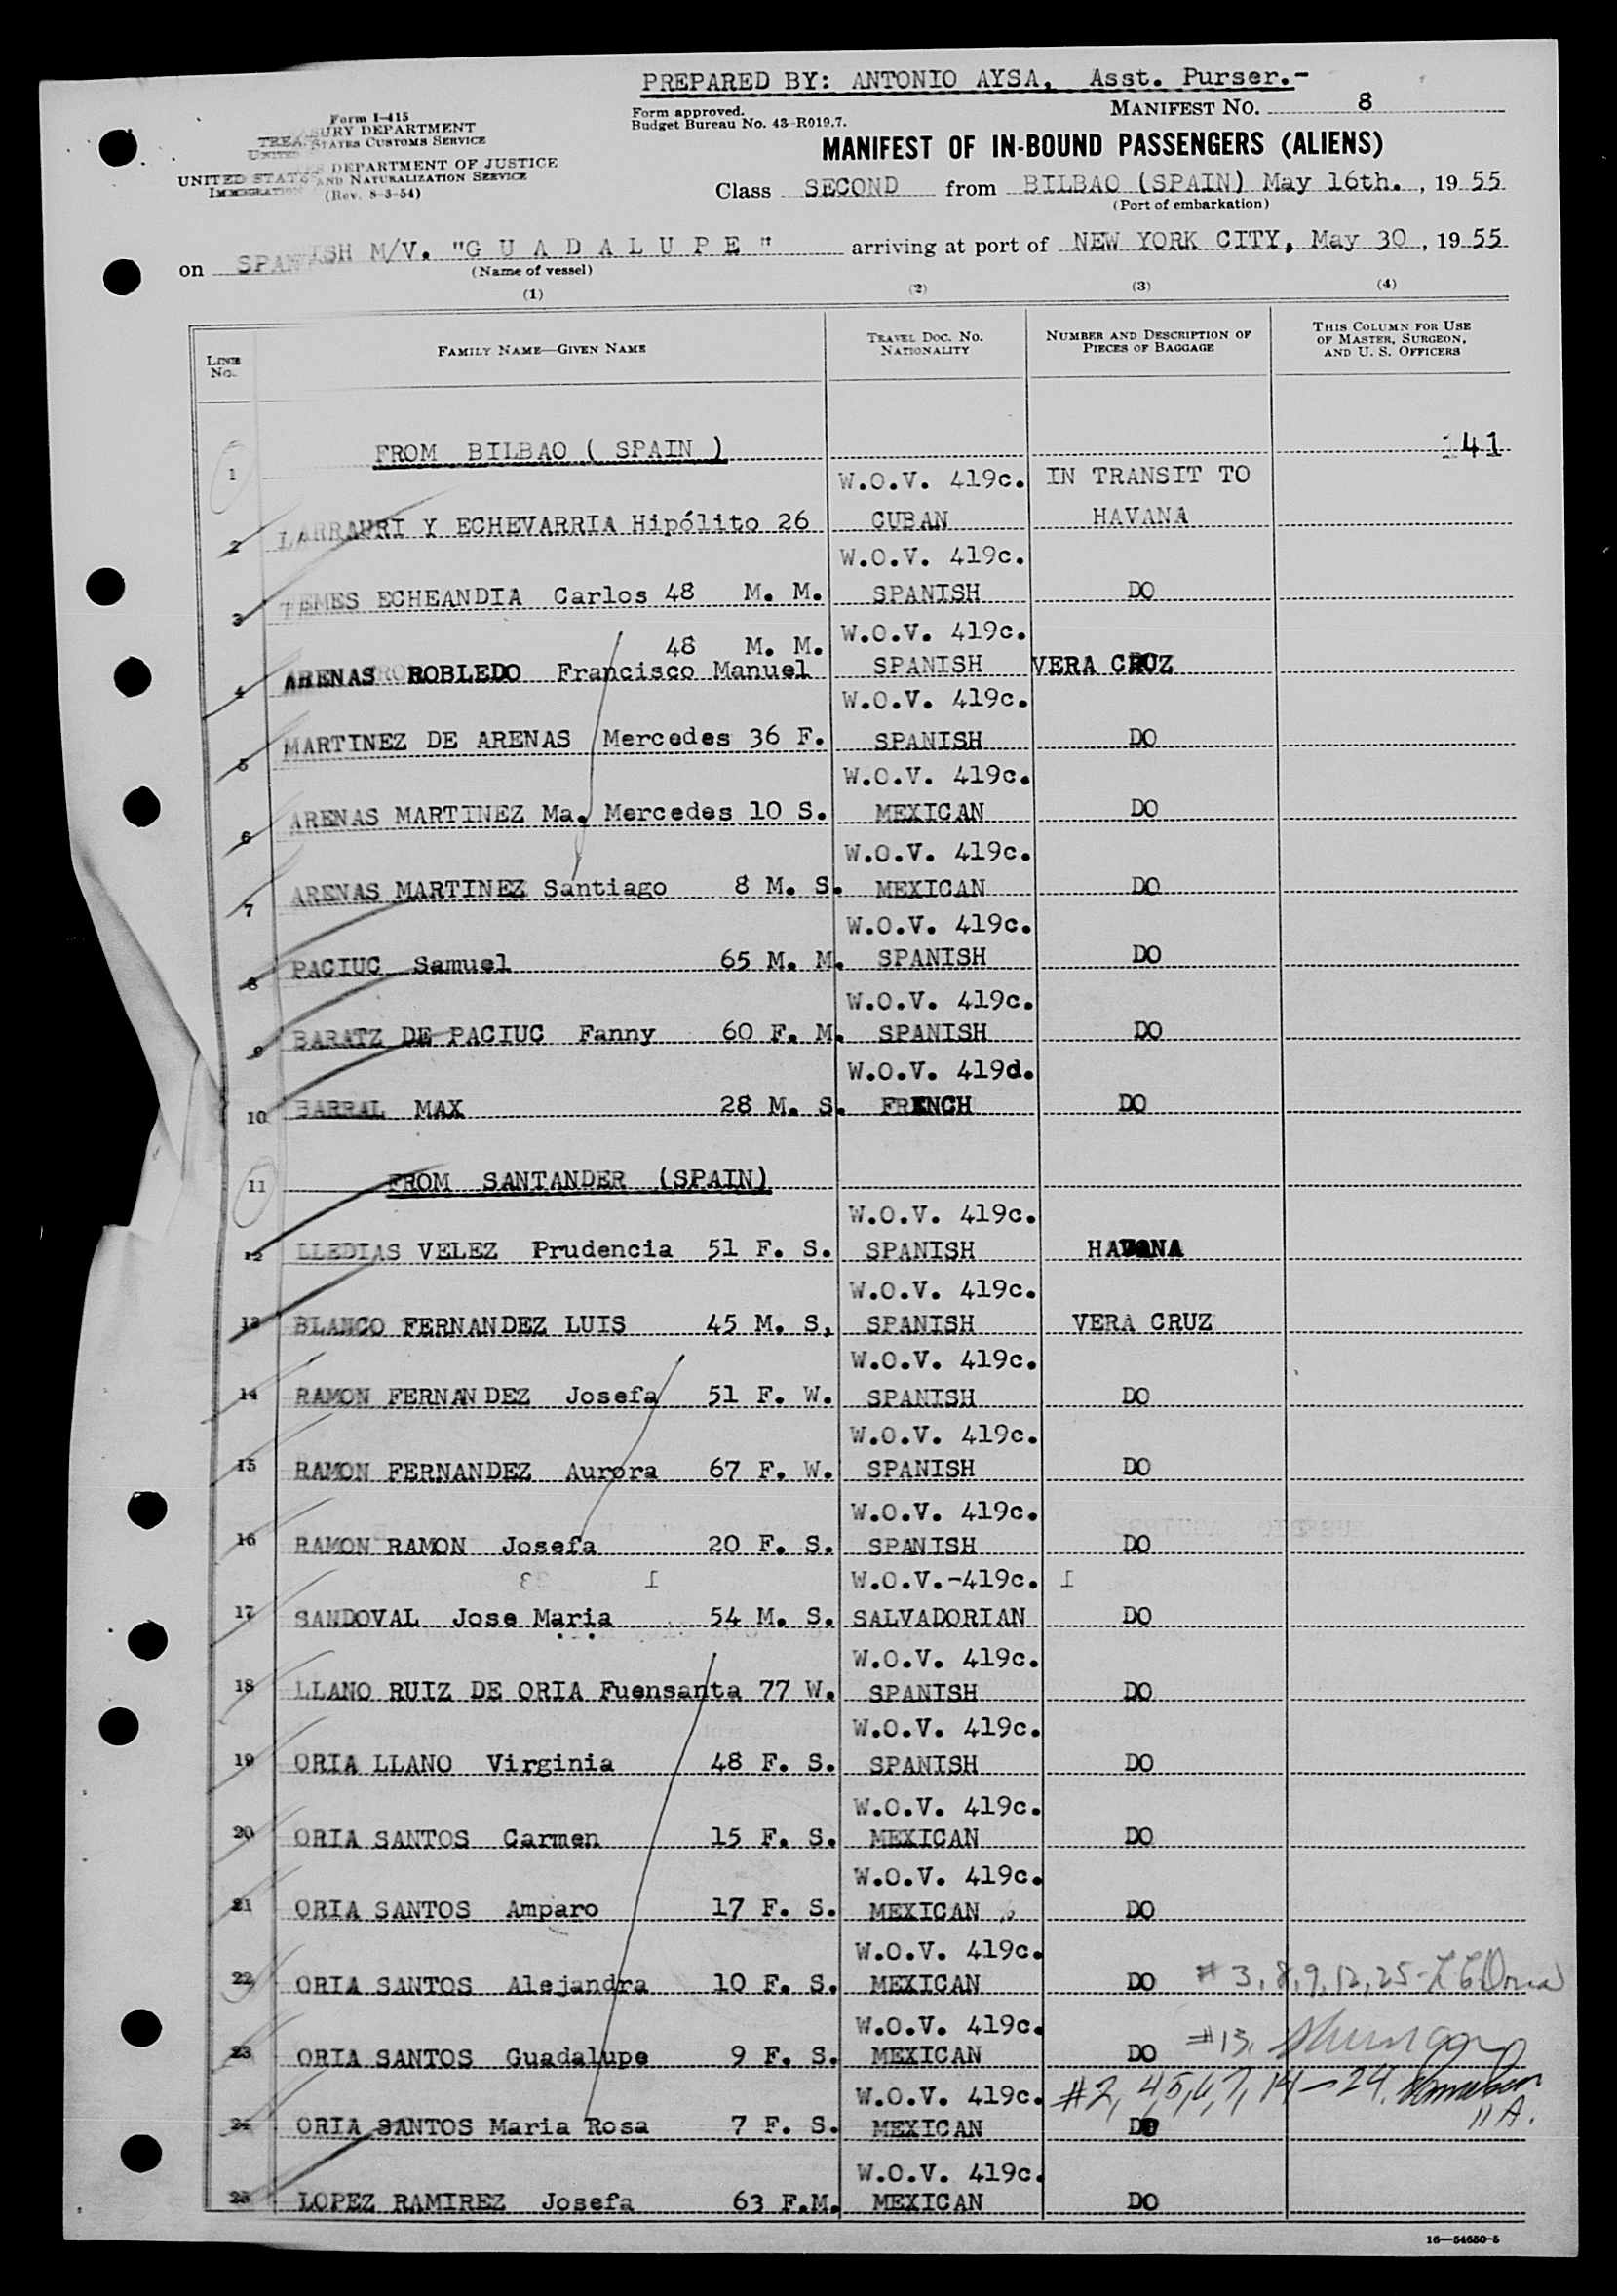 PREPARED BY: ANTONIO AYSA, Asst. Purser.-
Form approved.
Budget Bureau No. 43-R019.7.
MANIFEST NO. 8
Form I-415
TREASURY DEPARTMENT
UNITED STATES CUSTOMS SERVICE
UNITED STATES DEPARTMENT OF JUSTICE
IMMIGRATION AND NATURALIZATION SERVICE
(Rev. 8-3-54)
MANIFEST OF IN-BOUND PASSENGERS (ALIENS)
Class SECOND from BILBAO (SPAIN) May 16th. , 19 55
(Port of embarkation)
on SPANISH M/V. "G U A D A L U P E " arriving at port of NEW YORK CITY, May 30 , 19 55
(Name of vessel)
(1) (2) (3) (4)
LINE NO. FAMILY NAME—GIVEN NAME TRAVEL DOC. NO. NATIONALITY NUMBER AND DESCRIPTION OF PIECES OF BAGGAGE THIS COLUMN FOR USE OF MASTER, SURGEON, AND U. S. OFFICERS
1 FROM BILBAO ( SPAIN ) 141
W.O.V. 419c. IN TRANSIT TO
2 LARRAURI Y ECHEVARRIA Hipólito 26 CUBAN HAVANA
W.O.V. 419c.
3 TEMES ECHEANDIA Carlos 48 M. M. SPANISH DO
48 M. M. W.O.V. 419c.
4 ARENAS ROBLEDO Francisco Manuel SPANISH VERA CRUZ
W.O.V. 419c.
5 MARTINEZ DE ARENAS Mercedes 36 F. SPANISH DO
W.O.V. 419c.
6 ARENAS MARTINEZ Ma. Mercedes 10 S. MEXICAN DO
W.O.V. 419c.
7 ARENAS MARTINEZ Santiago 8 M. S. MEXICAN DO
W.O.V. 419c.
8 PACIUC Samuel 65 M. M. SPANISH DO
W.O.V. 419c.
9 BARATZ DE PACIUC Fanny 60 F. M. SPANISH DO
W.O.V. 419d.
10 BARRAL MAX 28 M. S. FRENCH DO
11 FROM SANTANDER (SPAIN)
W.O.V. 419c.
12 LLEDIAS VELEZ Prudencia 51 F. S. SPANISH HAVANA
W.O.V. 419c.
13 BLANCO FERNANDEZ LUIS 45 M. S, SPANISH VERA CRUZ
W.O.V. 419c.
14 RAMON FERNANDEZ Josefa 51 F. W. SPANISH DO
W.O.V. 419c.
15 RAMON FERNANDEZ Aurora 67 F. W. SPANISH DO
W.O.V. 419c.
16 RAMON RAMON Josefa 20 F. S. SPANISH DO
W.O.V.-419c.
17 SANDOVAL Jose Maria 54 M. S. SALVADORIAN DO
W.O.V. 419c.
18 LLANO RUIZ DE ORIA Fuensanta 77 W. SPANISH DO
W.O.V. 419c.
19 ORIA LLANO Virginia 48 F. S. SPANISH DO
W.O.V. 419c.
20 ORIA SANTOS Carmen 15 F. S. MEXICAN DO
W.O.V. 419c.
21 ORIA SANTOS Amparo 17 F. S. MEXICAN DO
W.O.V. 419c.
22 ORIA SANTOS Alejandra 10 F. S. MEXICAN DO # 3, 8, 9, 12, 25-
W.O.V. 419c.
23 ORIA SANTOS Guadalupe 9 F. S. MEXICAN DO #13,
W.O.V. 419c. #2, 4,5,6,7, 14-24.
24 ORIA SANTOS Maria Rosa 7 F. S. MEXICAN DO
W.O.V. 419c.
25 LOPEZ RAMIREZ Josefa 63 F.M. MEXICAN DO
16—54650-5